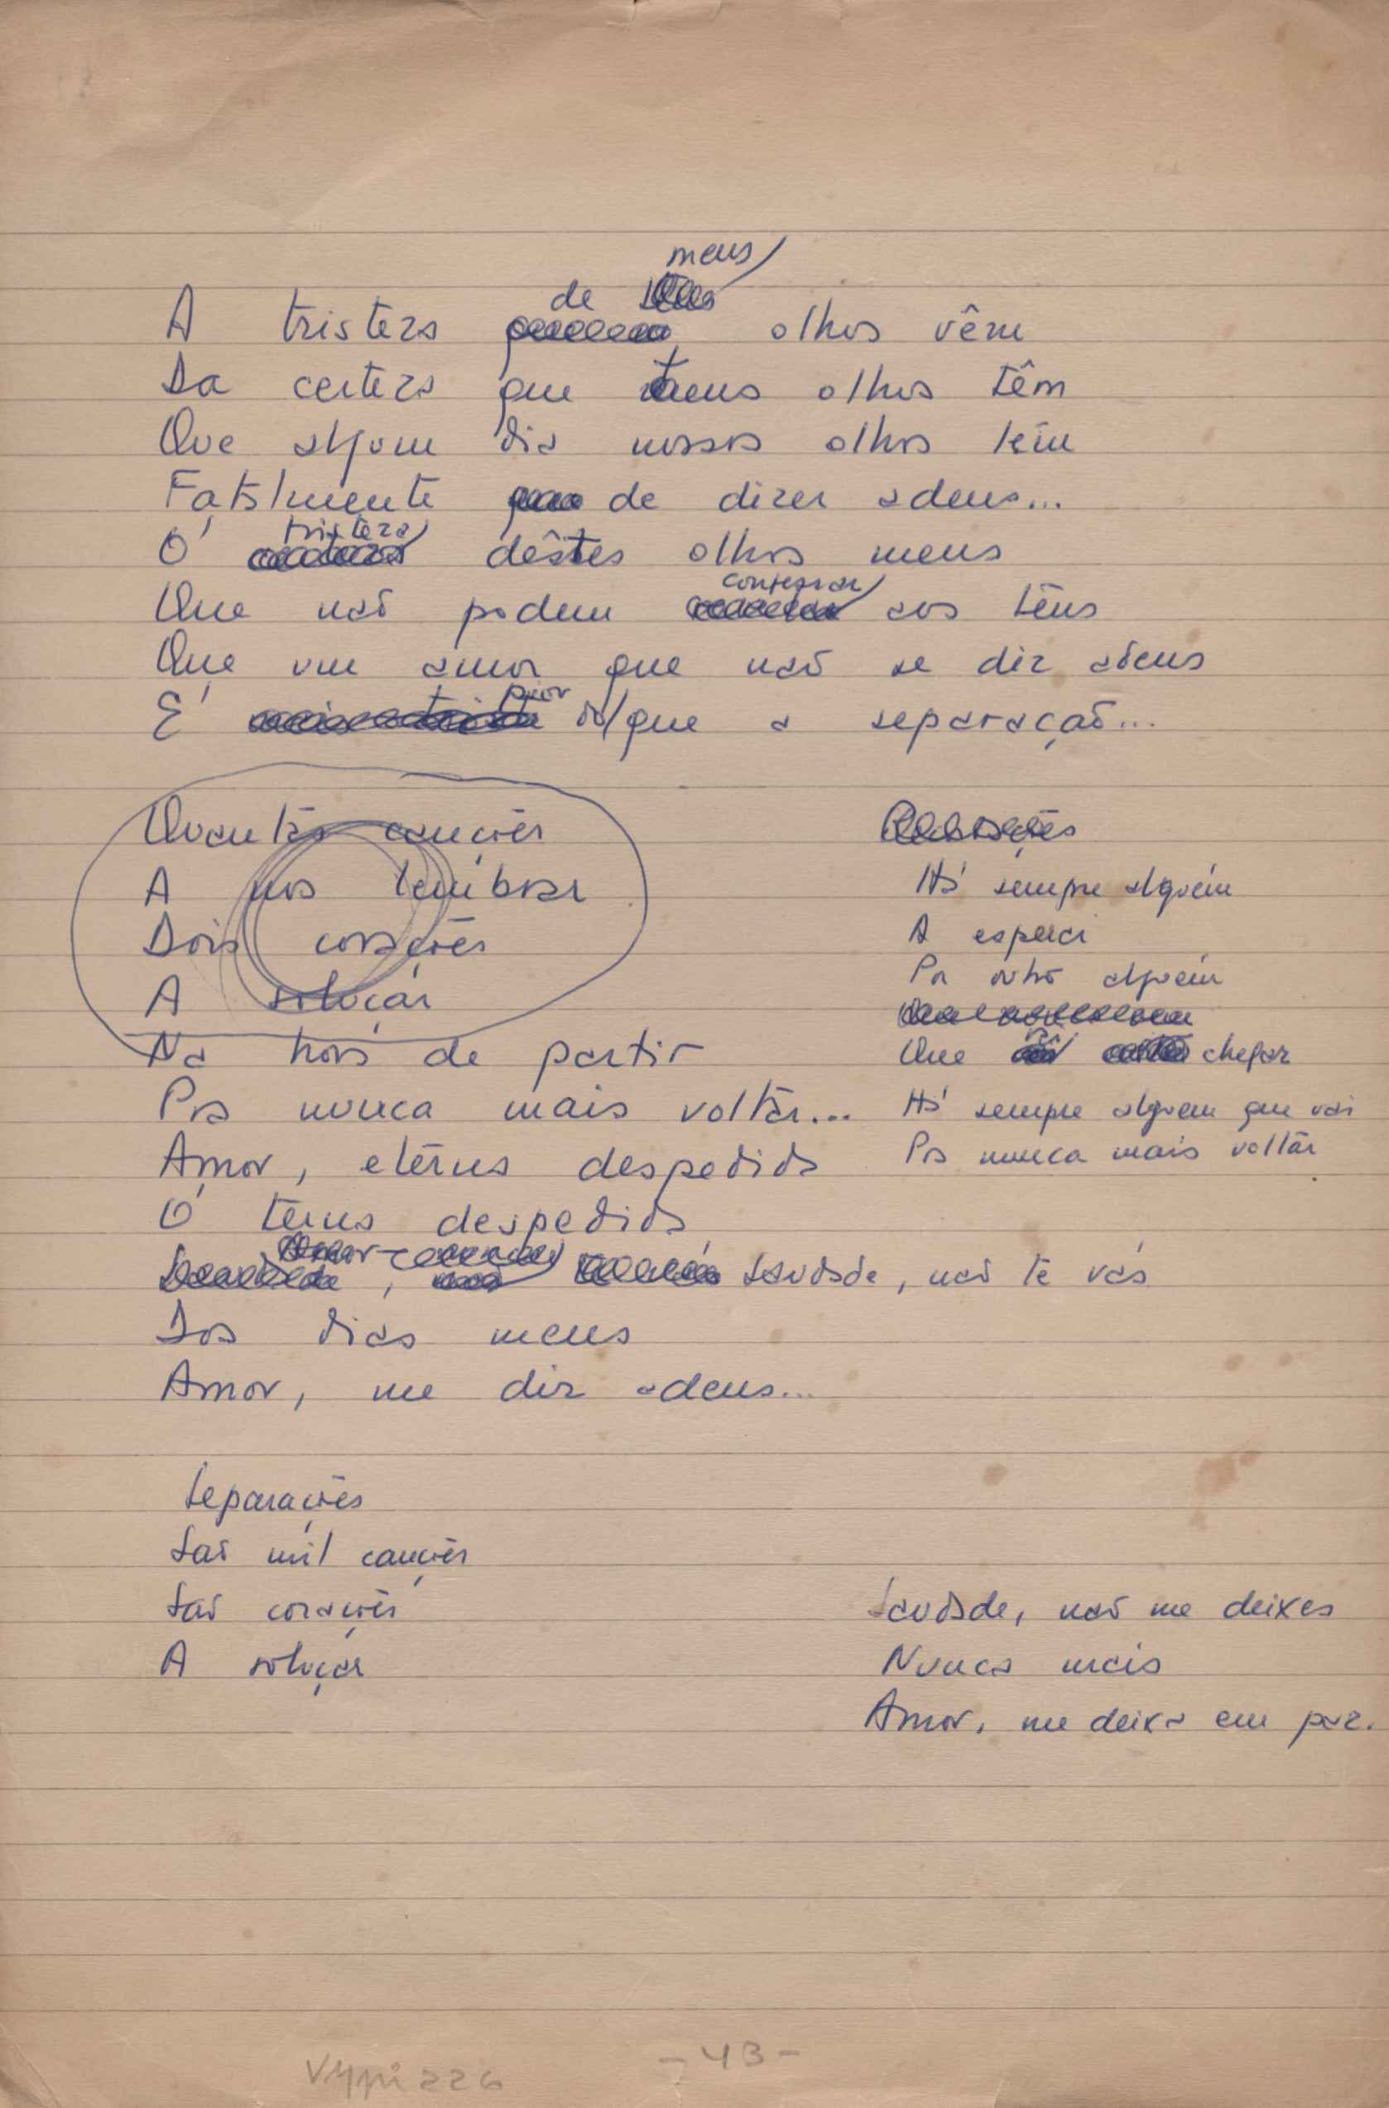 meus
de
A tristeza olhos vêm
Da certeza que teus olhos têm
Que algum dia nossos olhos têm
Fatalmente de dizer adeus...
Ó tristeza dêstes olhos meus
Que não podem confessar aos teus
Que um amor que não se diz adeus
É pior do que a separação...
Quantas canções
A nos lembrar
Dois corações
A soluçar
Na hora de partir
Pra nunca mais voltar...
Amor, eterna despedida
Ó terna despedida
Saudade, não te vás
Dos dias meus
Amor, me diz adeus...
Há sempre alguém
A esperar
Por outro alguém
Que chegar
Há sempre alguem que vai
Pra nunca mais voltar
Separações
São mil canções
São corações
A soluçar
Saudade, não me deixes
Nunca mais
Amor, me deixa em paz.
- 43 -